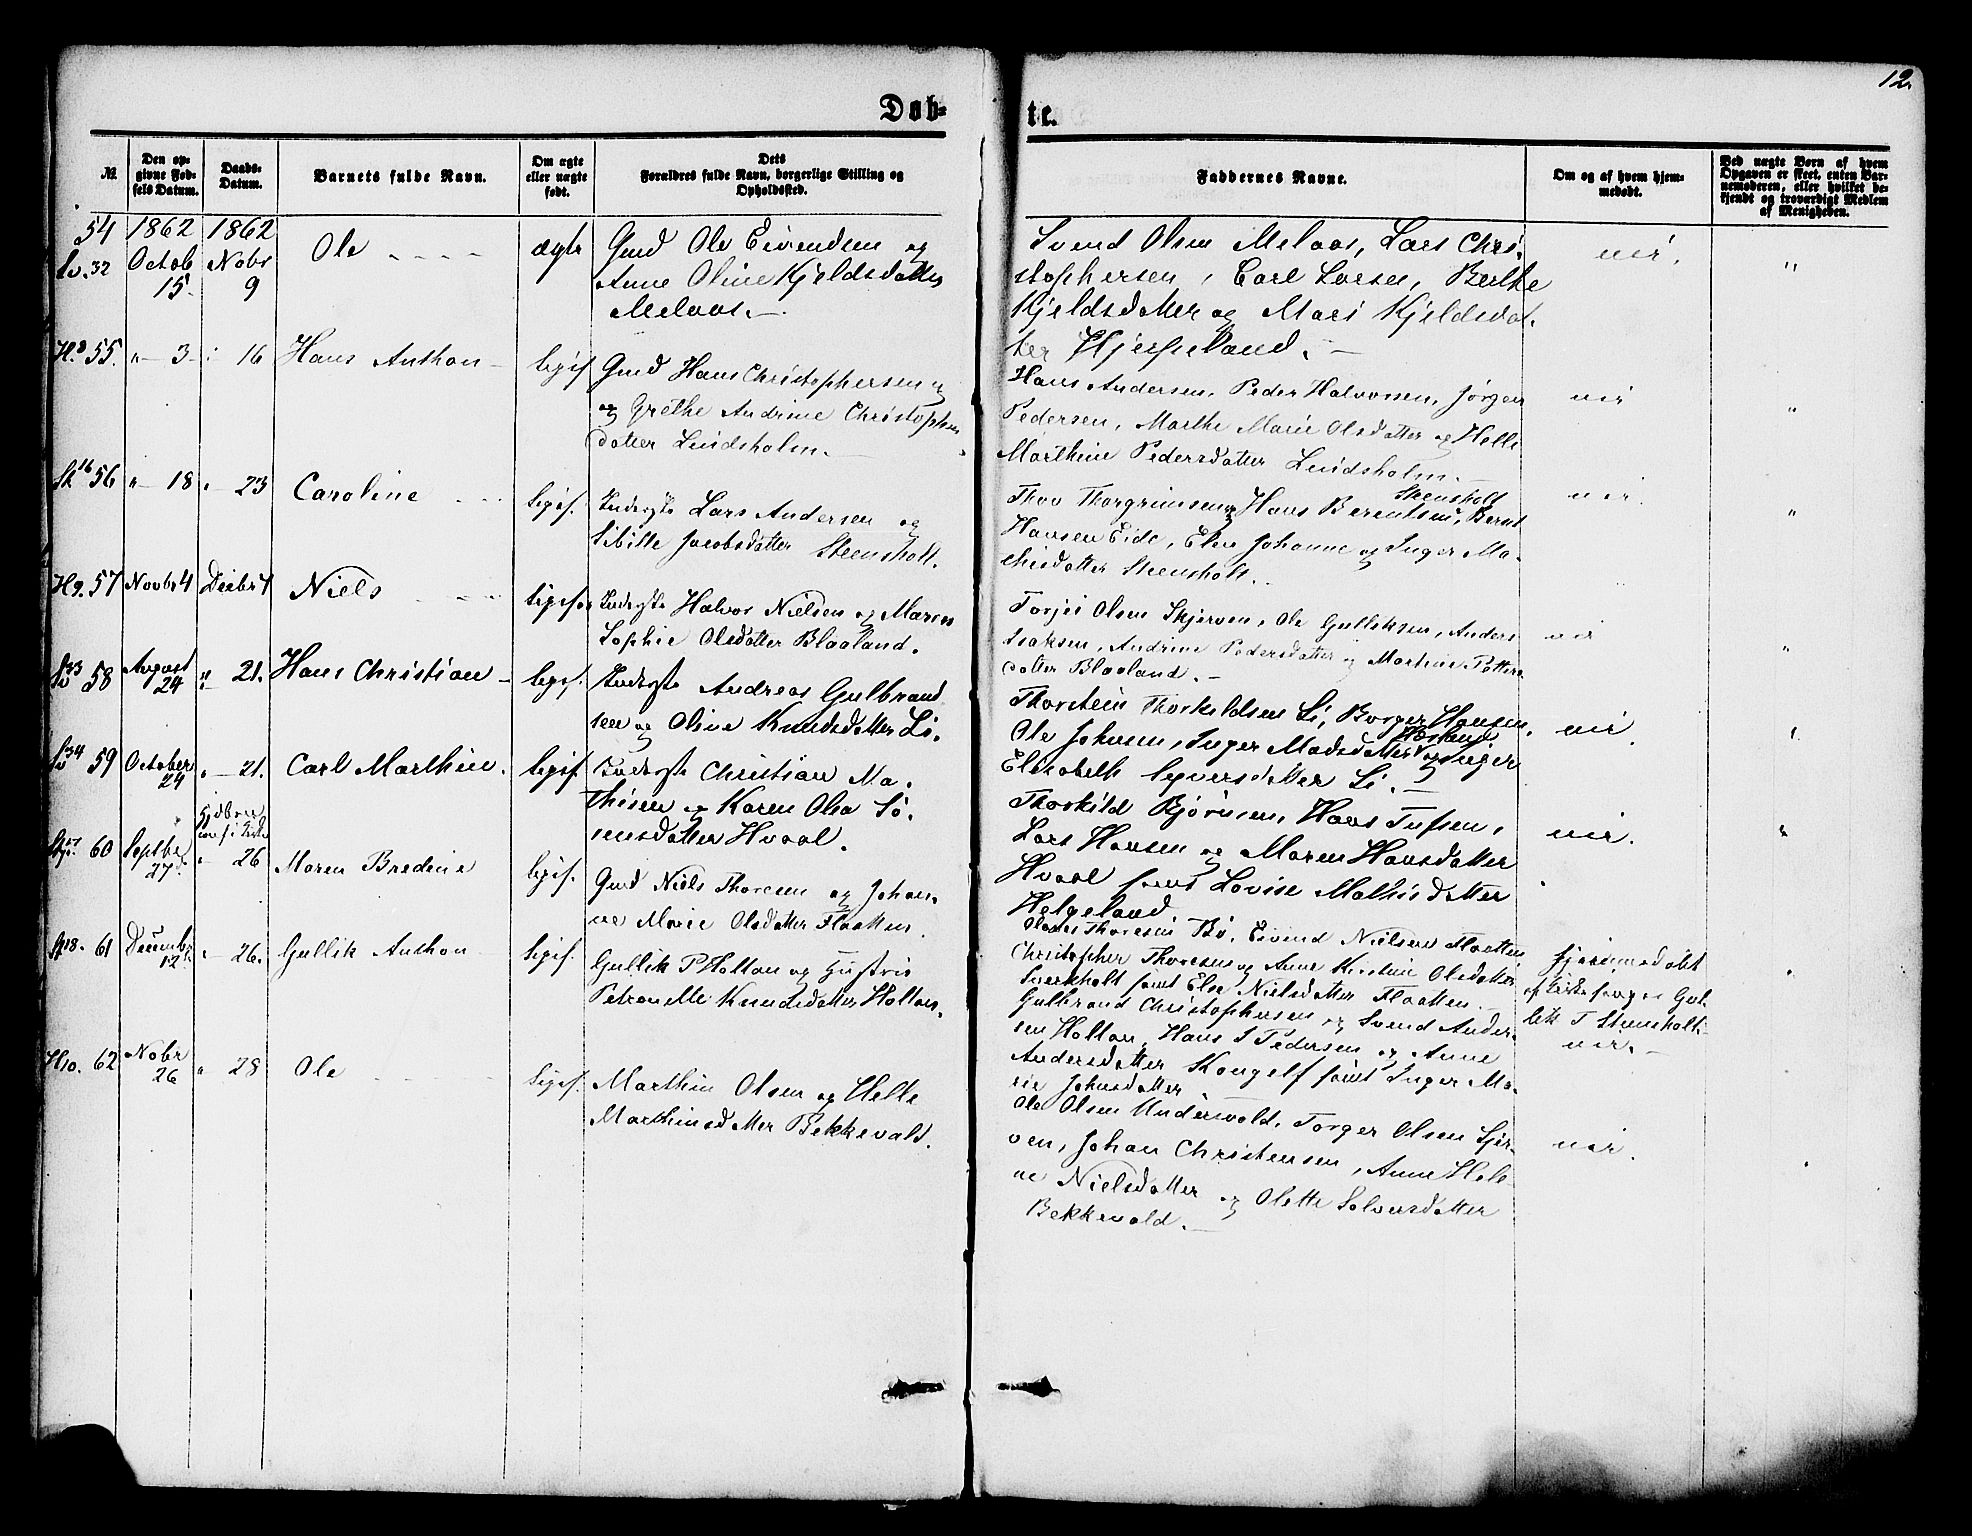 12.
Døb-
te.
№
Den op-
givne Fød-
sels Datum.
Daabs-
Datum.
Barnets fulde Navn.
Om ægte
eller uægte
født.
Dets
Forældres fulde Navn, borgerlige Stilling og
Opholdssted.
Faddernes Navne.
Om og af hvem hjem-
medøbt.
Ved uægte Børn af hvem
Opgaven er skeet, enten Bar-
nemoderen, eller hvilket be-
kjendt og troværdigt Medlem
af Menigheden.
54
1862
1862
Sv. 32
Octob
15.
Nobr
9
Ole
ægte
Gmd Ole Eivendsen og
Anne Oline Kjeldsdatter
Melaas.
Svend Olsen Melaas, Lars Chri-
stophersen, Carl Larsen, Berthe
Kjeldsdatter og Mari Kjeldsdat-
ter
nei.
"
H.8 55.
" 3
16
Hans Anthon
liges.
Gmd Hans Christophersen
og Grethe Andrine Christophers
datter Lindsholm.
Hans Andersen, Peder Halvorsen, Jørgen
Pedersen, Marthe Marie Olsdatter og Helle
Marthine Pedersdatter Lindsholm.
nei
"
St 16 56
" 18
" 23
Caroline
liges.
Inderste Lars Andersen og
Sibille Jacobsdatter Steensholt.
Thov Thorgrimsen og Hans Berentsen Steensholt, Bernt
Hansen Eide, Elen Johanne og Inger Ma-
thisdatter Steensholt.
nei.
"
H9. 57
Novbr 4
Decbr 7
Niels
liges.
Inderste Halvor Nielsen og Maren
Sophie Olsdatter Blaaland.
Torjei Olsen Skjerven, Ole Gulliksen, Anders
Isaksen, Andrine Pedersdatter og Marthine Petters-
datter Blaaland.
nei
"
Sv 33 58
August
24
" 21.
Hans Christian
liges.
Inderste Andreas Gulbrand
sen og Oline Knudsdatter Li.
Thorstein Thorkildsen Li, Borger Hansen,
Ole Johnsen, Inger Madsdatter og Inger
Elisabeth Iversdatter Li.
nei
Sv 34 59
October
24
" 21.
Carl Marthin.
liges.
Inderste Christian Ma-
thisen og Karen Olea Si-
monsdatter Hvaal.
Thorkild Bjørnsen, Hans Tufsen,
Lars Hansen og Maren Hansdatter
Hvaal samt Lovise Mathisdatter
Helgeland.
nei.
"
60
Septbr
27
" 26
Maren Bredine
liges.
Gmd Niels Thoresen og Johan-
ne Marie Olsdatter Flaatten.
Thoresen Bø, Eivind Nielsen Flaatten,
Christopher Thoresen og Anne Kirstine Olsdatter
Sverkholt samt Else Nielsdatter Flaatten.
hjemmedøbt
af Kirkesanger Gul-
lik T Steensholt.
"
18. 61
Decembr
12
" 26.
Gullik Anthon
liges.
Gullik P Holtan og Gustvis
Petronelle Knudsdatter Holtan.
Gulbrand Christophersen og Svend Ander-
sen Holtan, Hans S Pedersen og Anne
Andersdatter Kongelf samt Inger Ma-
rie Johnsdatter
nei.
H10. 62
Nobr
26
" 28
Ole
liges.
Marthin Olsen og Helle
Marthinsdatter Bekkevald.
Ole Olsen Undersvald, Torger Olsen Sjer-
ven, Johan Christensen, Anne Hele-
ne Nielsdatter og Olette Solversdatter
Bekkevald.
nei.